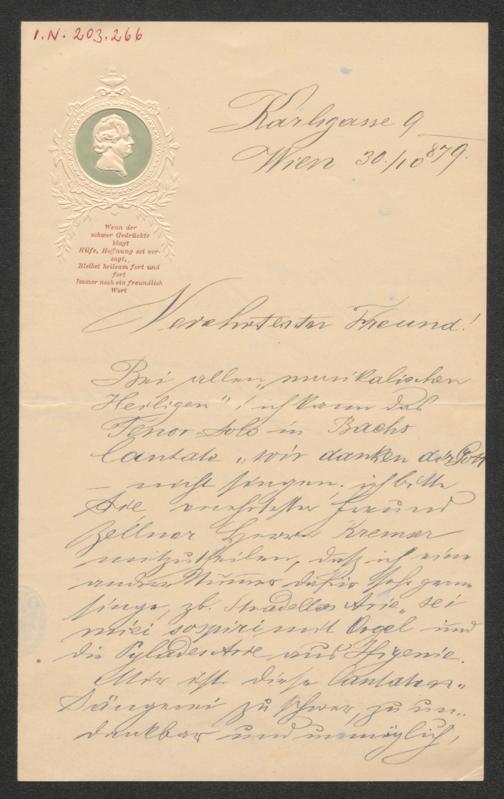 I.N. 203.266
Karlsgasse 9
Wien 30./10 879.
Wenn der
schwer Gedrückte
klagt
Hülfe, Hoffnung sei ver-
sagt,
Bleibet heilsam fort und
fort
Immer noch ein freundlich
Wort
Verehrtester Freund!
Bei allen „musikalischen
Heiligen"! ich kann das
Tenor-Solo in Bachs
Cantate „wir danken dir Gott
– nicht singen; ich bitte
Sie, verehrtester Freund
Zellner Herrn Kremser
mitzutheilen, daß ich eine
andere Numer dafür sehr gern
singe, zb. Stradellas Arie, sei
miei sospiri mit Orgel und
die Pylades Arie aus Ifigenie.
Mir ist diese Cantaten-
Sängerei zu schwer, zu un-
dankbar und unmöglich,